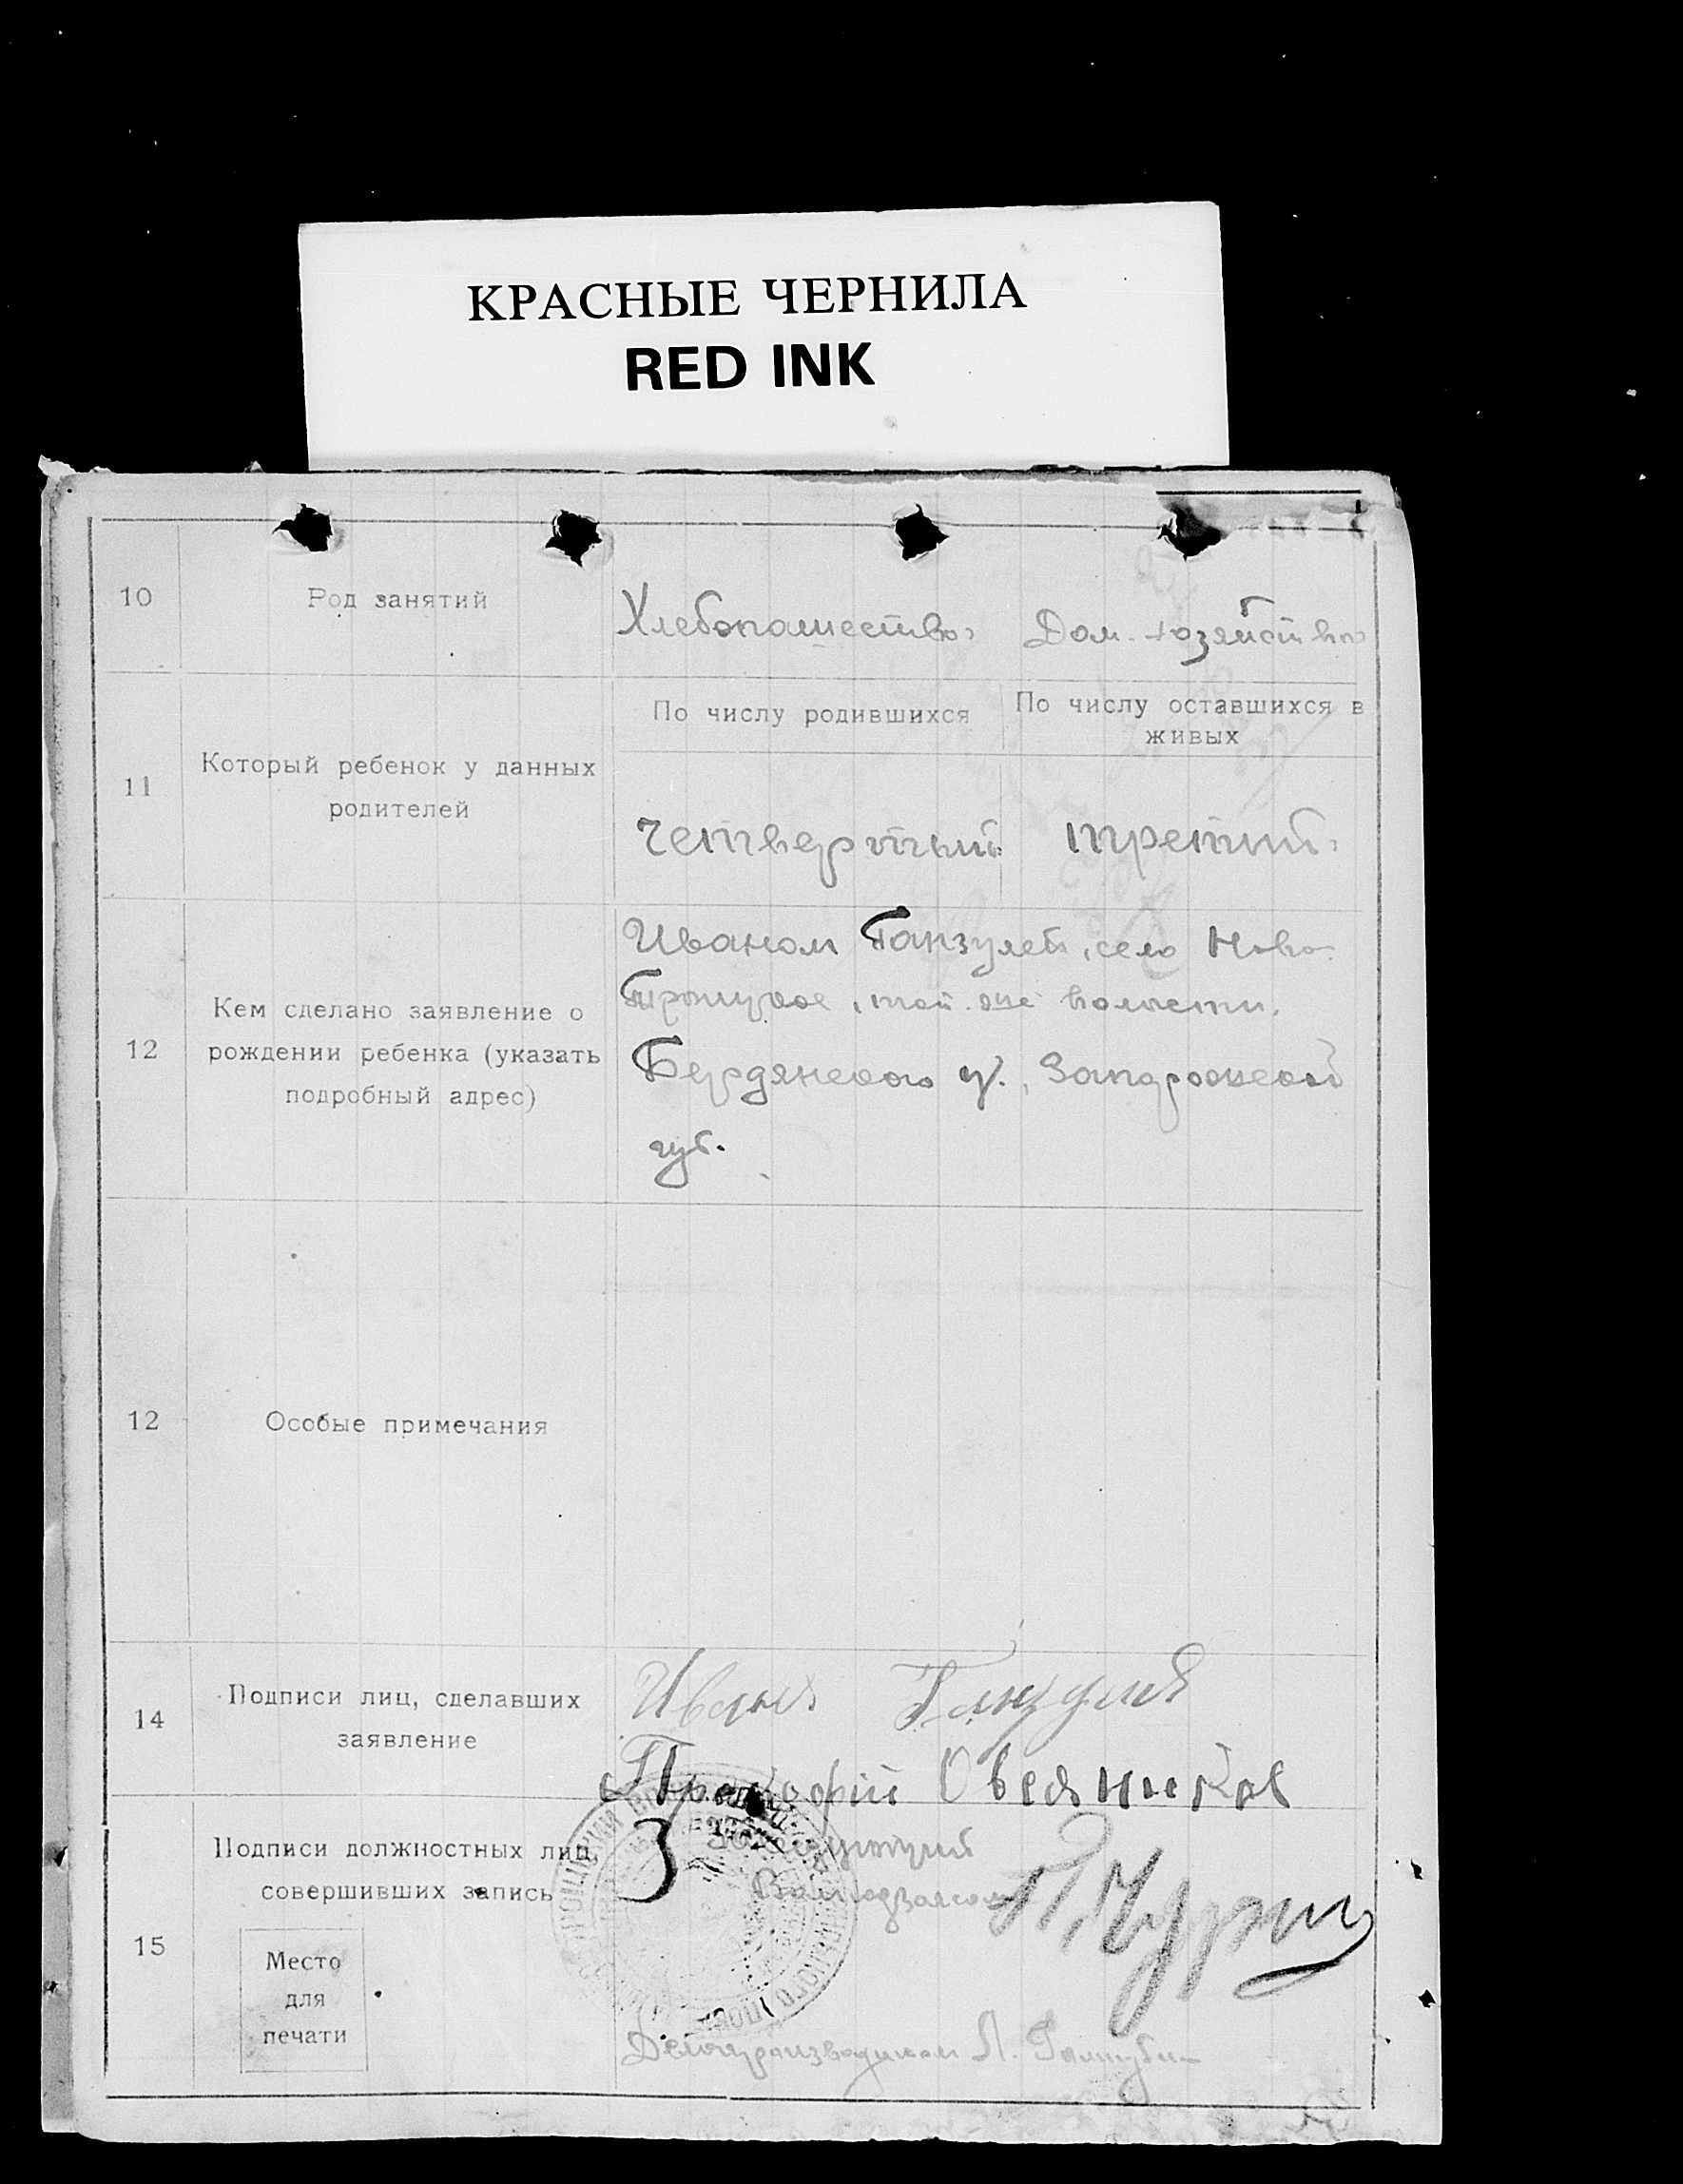 КРАСНЫЕ ЧЕРНИЛА
RED INK
10
Род занятий
Хлебопашество
Дом. хозяйство
11
Который ребенок у данных
родителей
По числу родившихся
По числу оставшихся в
живых
Четвертый
третий
12
Кем сделано заявление о
рождении ребенка (указать
подробный адрес)
Иваном село Ново-
троицкое, той же волости,
Бердянского у., Запорожской
губ.
12
Особые примечания
14
Подписи лиц, сделавших
заявление
Иван
Прокофий Овсянников
15
Подписи должностных лиц,
совершивших запись
Место
для
печати
Заведующий
Делопроизводитель